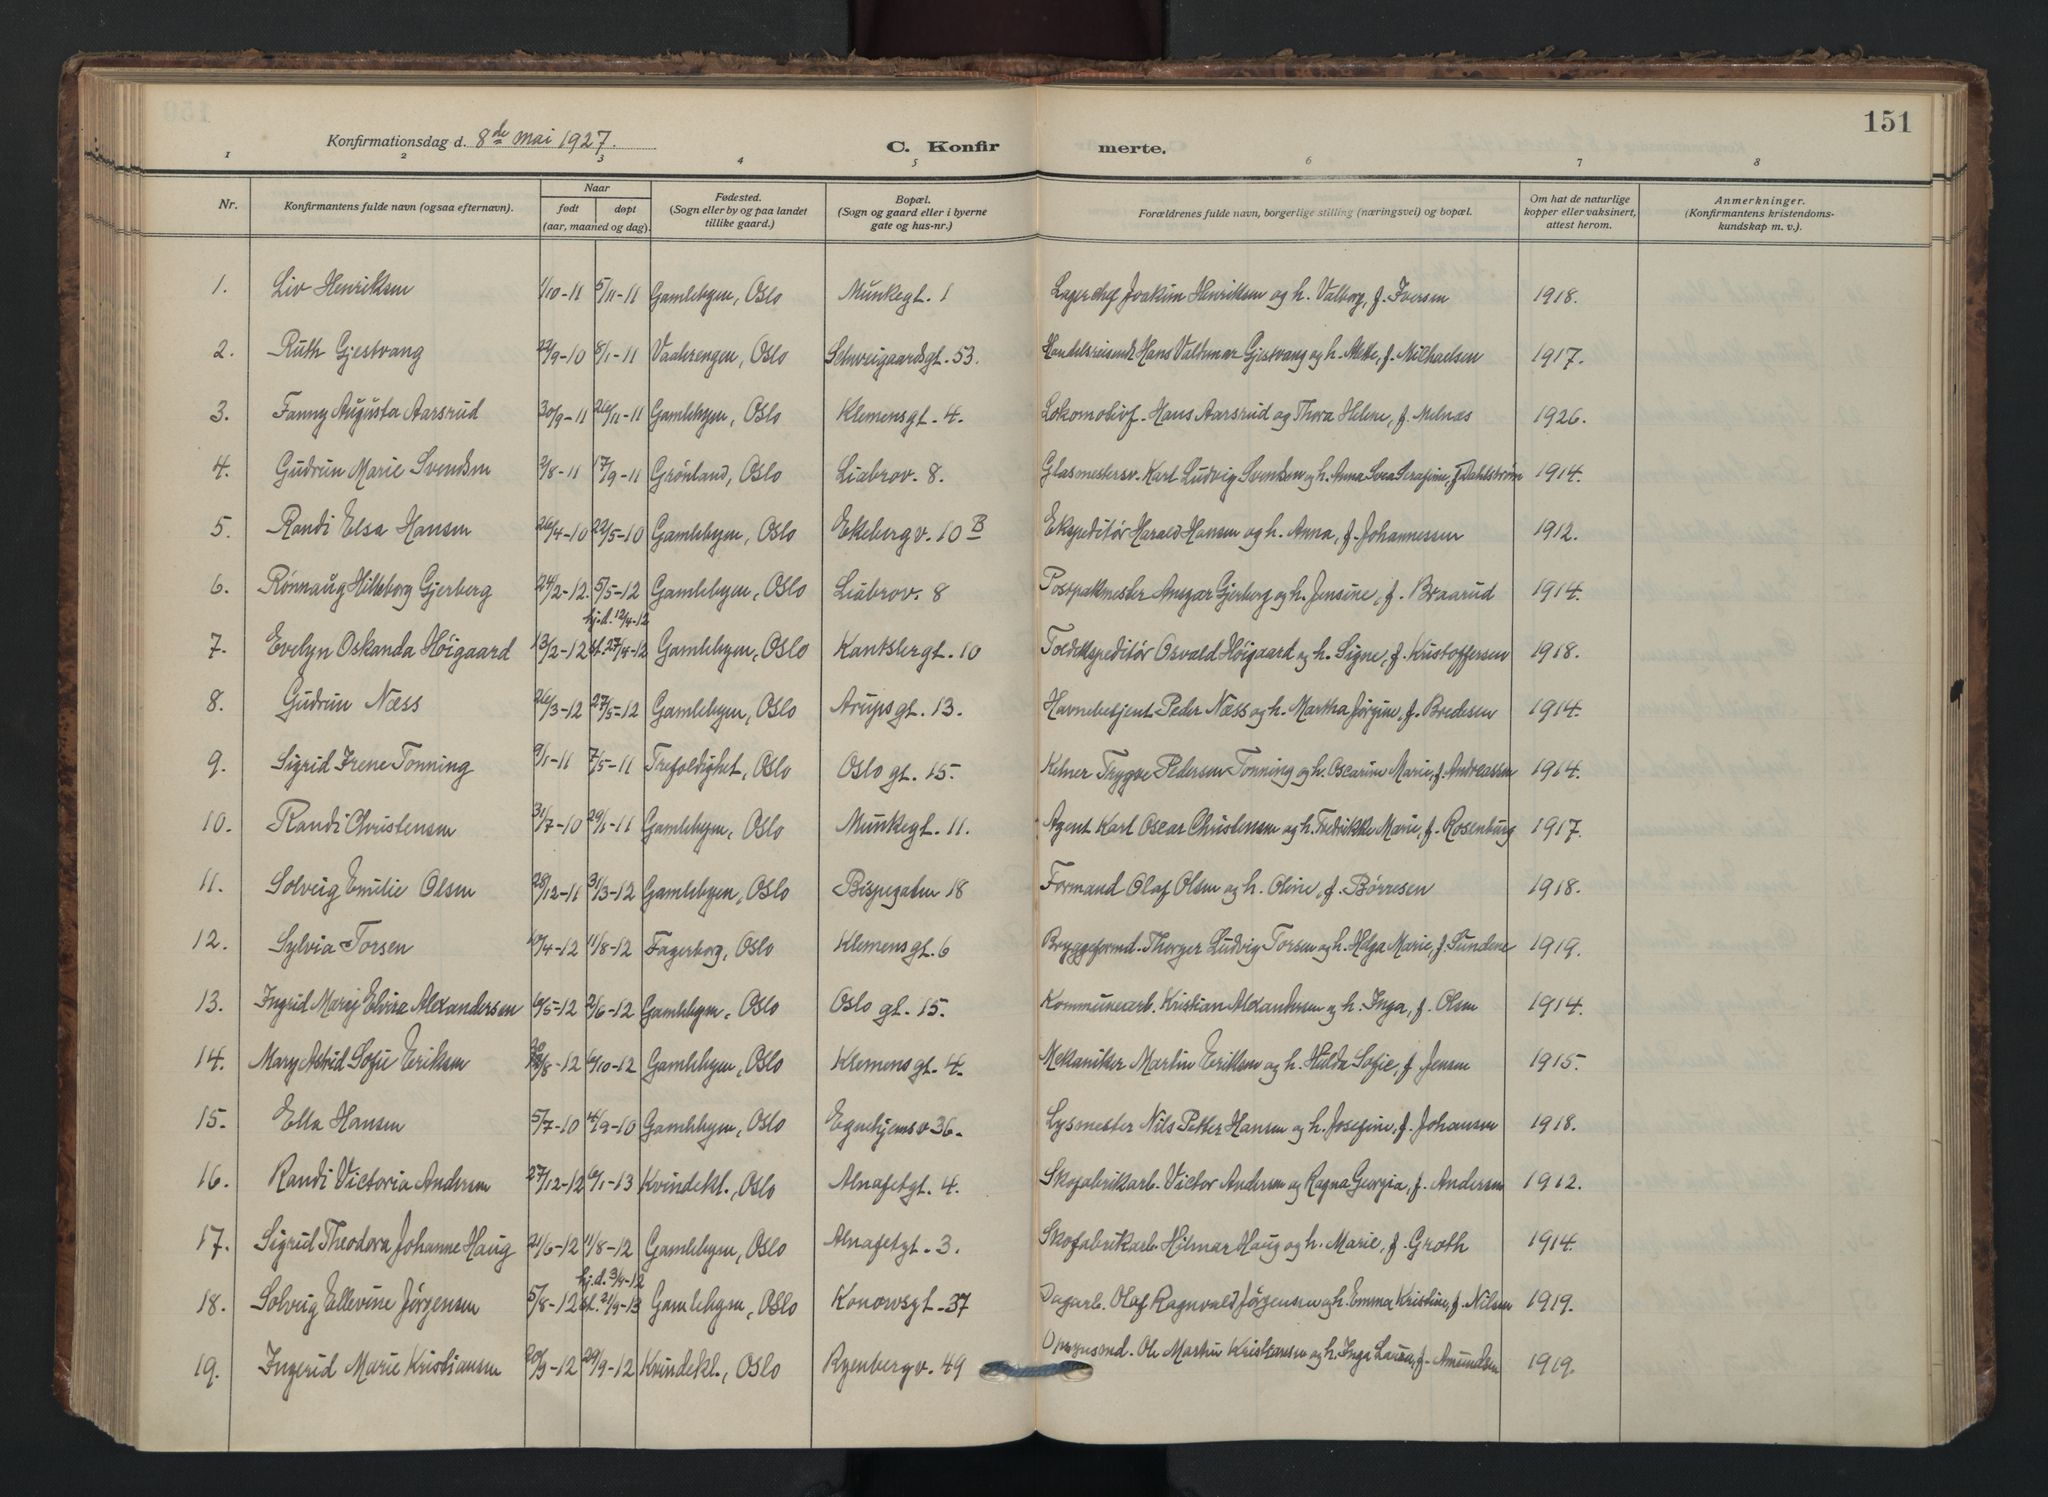 151
Konfirmationsdag d. 8de mai 1927.
C. Konfirmerte.
1 2 3 4 5 6 7 8
Nr. Konfirmantens fulde navn (ogsaa efternavn). Naar født døpt (aar, maaned og dag). Fødested. (Sogn eller by og paa landet tillike gaard.) Bopæl. (Sogn og gaard eller i byerne gate og hus-nr.) Forældrenes fulde navn, borgerlige stilling (næringsvei) og bopæl. Om hat de naturlige kopper eller vaksinert, attest herom. Anmerkninger. (Konfirmantens kristendomskundskap m. v.).
1. Liv Henriksen 1/10-11 5/11-11 Gamlebyen, Oslo Munkegt. 1 Lagerchef Joakim Henriksen og h. Valborg, f. Iversen 1918.
2. Ruth Gjestvang 22/9-10 8/1-11 Vaalerengen, Oslo Schweigaardsgt. 53. Handelsreisende Hans Valdemar Gjestvang og h. Mette, f. Michaelsen 1917.
3. Fanny Augusta Aarsrud 30/9-11 26/11-11 Gamlebyen, Oslo Klemensgt. 4. Lokomotivf. Hans Aarsrud og Thora Helene, f. Melnæs 1926.
4. Gudrun Marie Svendsen 2/8-11 17/9-11 Grønland, Oslo Liabrov. 8. Glasmestersv. Karl Ludvig Svendsen og h. Anna Svea Serafine, f. Dahlstrøm 1914.
5. Randi Elsa Hansen 26/4-10 22/5-10 Gamlebyen, Oslo Ekebergv. 10 B Ekspeditør Harald Hansen og h. Anna, f. Johannessen 1912.
6. Rønnaug Hildeborg Gjerberg 24/2-12. 5/5-12 Gamlebyen, Oslo Liabrov. 8 Postpakmester Ansgar Gjerberg og h. Jensine, f. Braarud 1914.
7. Evelyn Oskanda Høigaard 13/2-12 hj.d. 12/4-12 st. 27/4-12 Gamlebyen, Oslo Kantslergt. 10 Toldekspeditør Osvald Høigaard og h. Signe, f. Kristoffersen 1918.
8. Gudrun Næss 26/3-12 27/5-12 Gamlebyen, Oslo Arupsgt. 13. Havnebetjent Peder Næss og h. Martha Jørgine, f. Bredesen 1914.
9. Sigrid Irene Tonning 9/1-11 7/5-11 Trefoldighet, Oslo Oslo gt. 15. Kelner Trygve Pedersen Tonning og h. Oscarine Marie, f. Andreassen 1914.
10. Randi Christensen 31/7-10 29/1-11 Gamlebyen, Oslo Munkegt. 11. Agent Karl Oscar Christensen og h. Fredrikke Marie, f. Rosenburg 1917.
11. Solveig Emilie Olsen 28/12-11 31/3-12 Gamlebyen, Oslo Bispegaten 18 Formand Olaf Olsen og h. Oline, f. Børresen 1918.
12. Sylvia Torsen 10/4-12 11/8-12 Fagerborg, Oslo Klemensgt. 6 Bryggeformd. Thorger Ludvig Torsen og h. Helga Marie, f. Sundene 1919.
13. Ingrid Marij Elvira Alexandersen 16/5-12 2/6-12 Gamlebyen, Oslo Oslo gt. 15. Kommunearb. Kristian Alexandersen og h. Inga, f. Olsen 1914.
14. Mary Astrid Sofie Eriksen /8-12 6/10-12 Gamlebyen, Oslo Klemensgt. 4. Mekaniker Martin Eriksen og h. Hulda Sofie, f. Jensen 1915.
15. Ella Hansen 5/7-10 4/9-10 Gamlebyen, Oslo Egnehjemsv 36. Lysmester Nils Petter Hansen og h. Josefine, f. Johansen 1918.
16. Randi Victoria Andersen 27/12-12 6/1-13 Kvindekl., Oslo Alnafetgt. 4. Skofabrikarb. Victor Andersen og Ragna Georgia, f. Andersen 1912.
17. Sigrid Theodora Johanne Haug 21/6-12 11/8-12 Gamlebyen, Oslo Alnafetgt. 3. Skofabrikarb. Hilmar Haug og h. Marie, f. Groth 1914.
18. Solveig Ellevine Jørgensen 5/8-12 hj.d. 3/9-12 st. 21/9-13 Gamlebyen, Oslo Konowsgt. 37 Dagarb. Olaf Ragnvald Jørgensen og h. Emma Kristine, f. Nilsen 1919.
19. Ingerid Marie Kristiansen 20/9-12 29/9-12 Kvindekl., Oslo Ryenbergv. 49 Opsynsmd. Ole Martin Kristiansen og h. Inga Laura, f. Amundsen 1919.